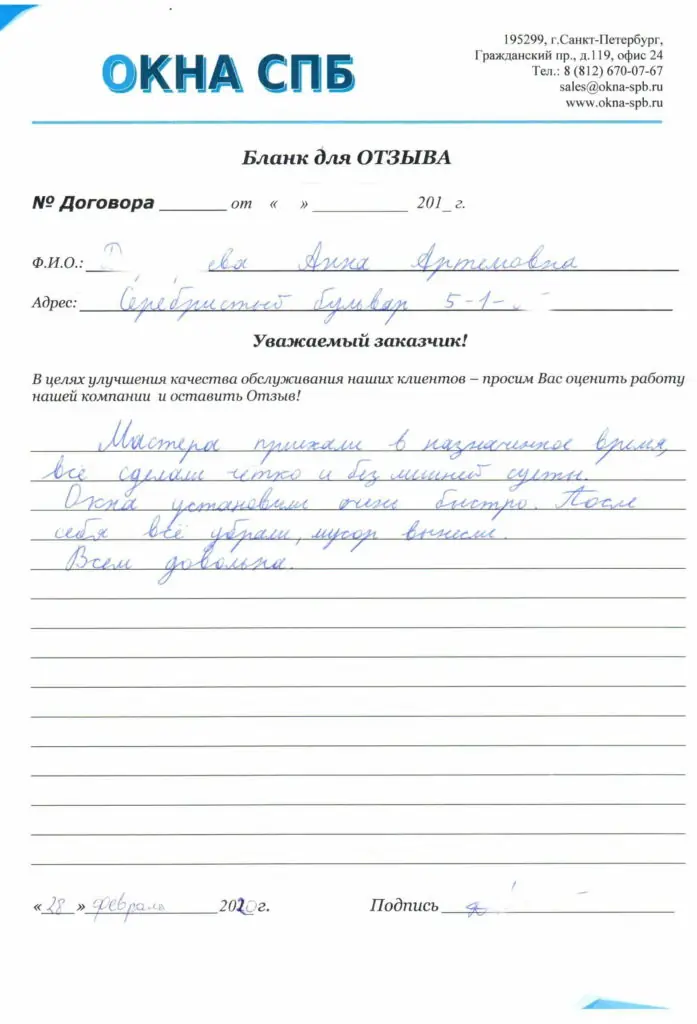 ОКНА СПБ
195299, г.Санкт-Петербург,
Гражданский пр., д.119, офис 24
Тел.: 8 (812) 670-07-67
sales@okna-spb.ru
www.okna-spb.ru
Бланк для ОТЗЫВА
№ Договора _______ от « » __________ 201_ г.
Ф.И.О.: ева Анна Артемовна
Адрес: Серебристый бульвар 5-1-
Уважаемый заказчик!
В целях улучшения качества обслуживания наших клиентов – просим Вас оценить работу
нашей компании и оставить Отзыв!
Мастера приехали в назначенное время,
всё сделали четко и без лишней суеты.
Окна установили очень быстро. После
себя всё убрали, мусор вынесли.
Всем довольна.
«28» февраль 2020г.
Подпись